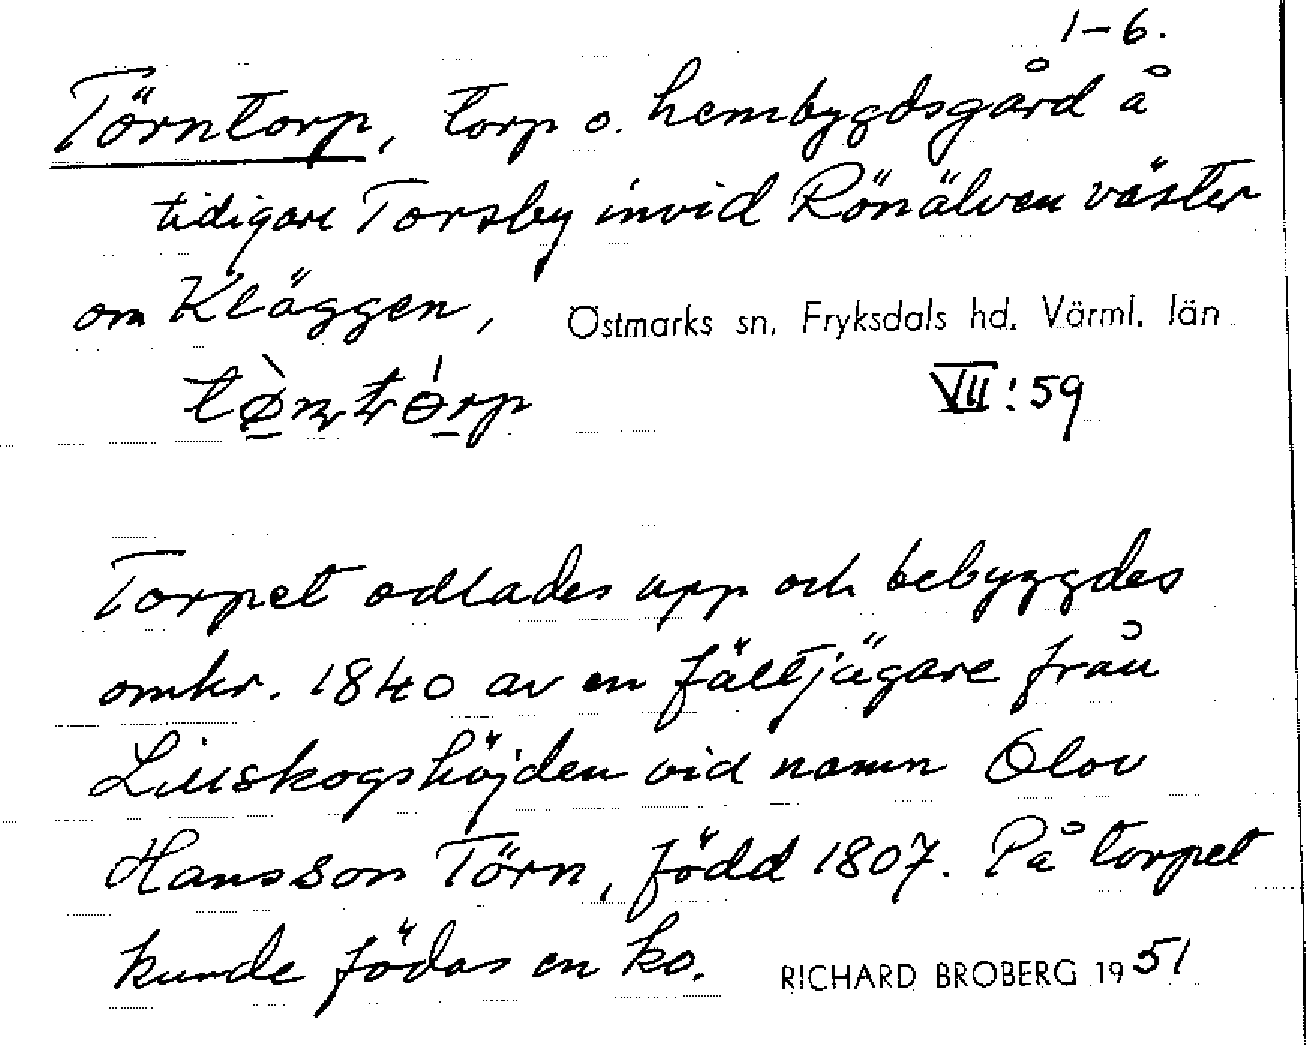 1-6.
Törntorp, torp o. hembygdsgård å
tidigare Torsby invid Rönälven väster
om Kläggen, Östmarks sn. Fryksdals hd. Värml. län
VII:59
Torpet odlades upp och bebyggdes
omkr. 1840 av en fältjägare från
Lillskogshöjden vid namn Olov
Hansson Törn, född 1807. På torpet
kunde födas en ko. RICHARD BROBERG 1951